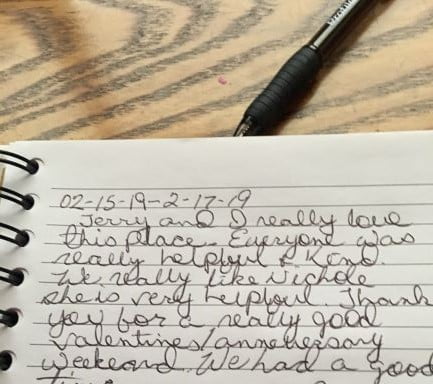 02-15-19-2-17-19
Jerry and I really love
this place. Everyone was
really helpful & Kind
We really like Nichole
she is very helpful. Thank
you for a really good
valentines/anneversary
weekend. We had a good